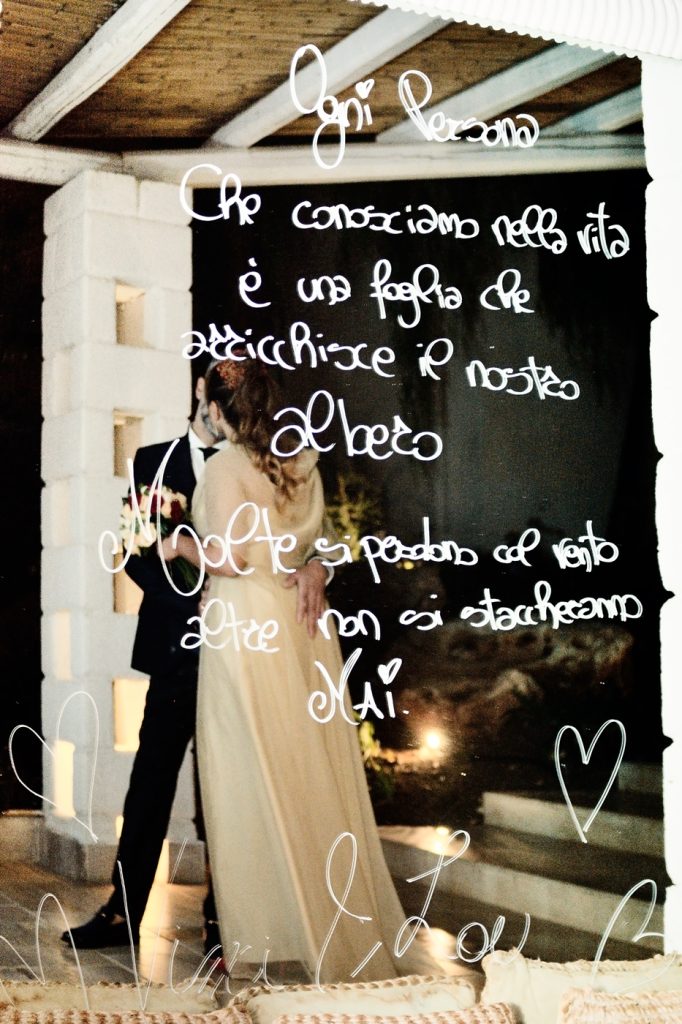 Ogni Persona
Che conosciamo nella vita
è una foglia che
arricchisce il nostro
albero
Molte si perdono col vento
altre non si staccheranno
MAi.